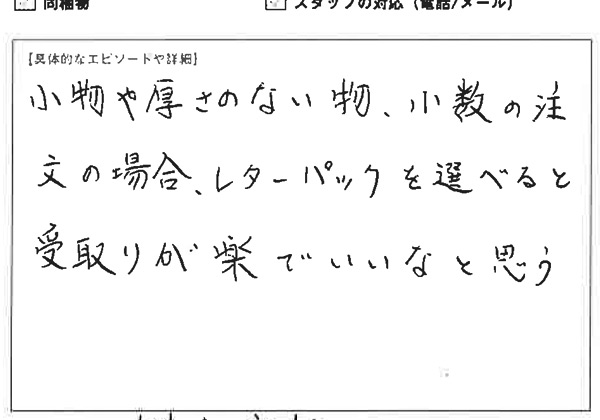 同梱物 スタッフの対応（電話/メール）
【具体的なエピソードや詳細】
小物や厚さのない物、小数の注
文の場合、レターパックを選べると
受取りが楽でいいなと思う